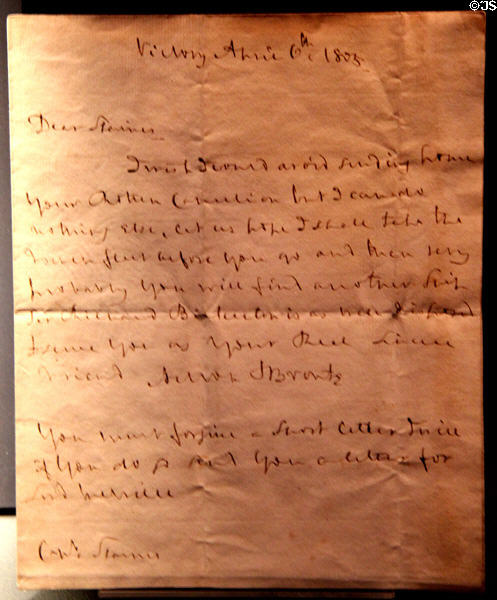 ©JS
Victory April 6th. 1805.
Dear Staines
I wish I could avoid sending home
your Rotten Concern but I can do
nothing Else, let us hope I shall take the
french fleet before you go and then very
probably you will find another Ship
Sir Richard Bickerton is as well disposed
to serve you as your Real Sincere
friend Nelson & Bronte
You must forgive a Short letter I will
if you do send you a letter for
Lord Melville
Capt. Staines